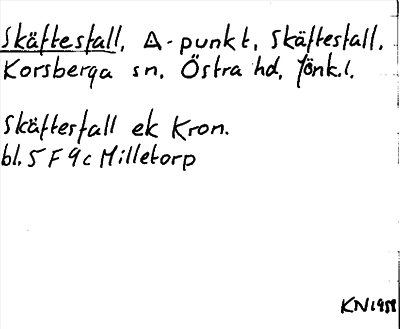 Skäftesfall, A-punkt, Skäftesfall,
Korsberga sn, Östra hd, Jönk.l.
Skäftesfall ek Kron.
bl. 5 F 9 c Milletorp
KN 1958